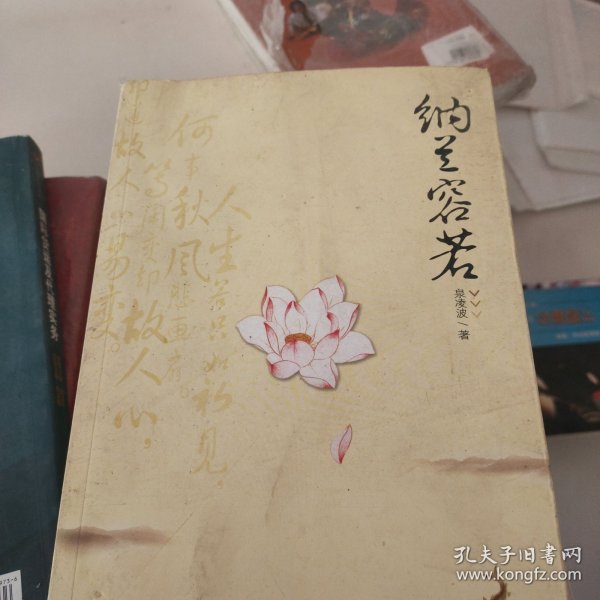 纳兰容若
泉凌波/著
人生若只如初见
何事秋风悲画扇
等闲变却故人心，
却道故人心易变
孔夫子旧书网
www.kongfz.com